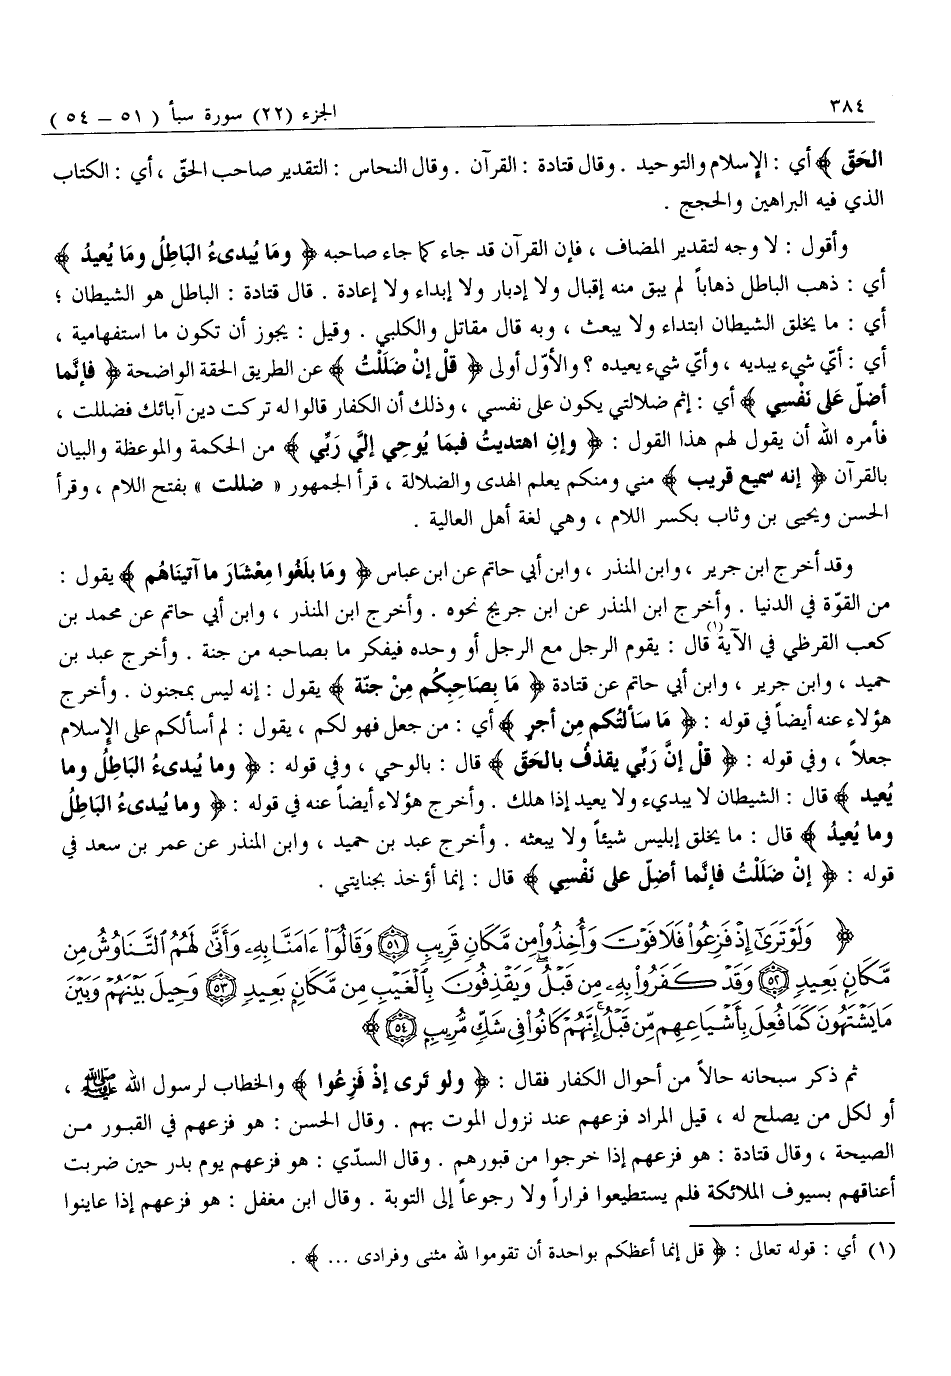 ٣٨٤
الجزء (٢٢) سورة سبأ ( ٥١ – ٥٤ )
الحَقّ ﴾ أي : الإسلام والتوحيد . وقال قتادة : القرآن . وقال النحاس : التقدير صاحب الحق ، أي : الكتاب
الذي فيه البراهين والحجج .
وأقول : لا وجه لتقدير المضاف ، فإن القرآن قد جاء كما جاء صاحبه ﴿ ومَا يُبدىءُ البَاطِلُ ومَا يُعيدُ ﴾
أي : ذهب الباطل ذهاباً لم يبق منه إقبال ولا إدبار ولا إبداء ولا إعادة . قال قتادة : الباطل هو الشيطان ؛
أي : ما يخلق الشيطان ابتداء ولا يبعث ، وبه قال مقاتل والكلبي . وقيل : يجوز أن تكون ما استفهامية ،
أي : أيّ شيء يبديه ، وأيّ شيء يعيده ؟ والأوّل أولى ﴿ قلْ إنْ ضَلَلْتُ ﴾ عن الطريق الحقة الواضحة ﴿ فإنَّما
أضلّ عَلى نَفْسِي ﴾ أي : إثم ضلالتي يكون على نفسي ، وذلك أن الكفار قالوا له تركت دين آبائك فضللت ،
فأمره الله أن يقول لهم هذا القول : ﴿ وإنِ اهتديتُ فبمَا يُوحِي إليَّ رَبِّي ﴾ من الحكمة والموعظة والبيان
بالقرآن ﴿ إنه سميع قريب ﴾ مني ومنكم يعلم الهدى والضلالة ، قرأ الجمهور « ضللت » بفتح اللام ، وقرأ
الحسن ويحيى بن وثاب بكسر اللام ، وهي لغة أهل العالية .
وقد أخرج ابن جرير ، وابن المنذر ، وابن أبي حاتم عن ابن عباس ﴿ ومَا بلَغُوا مِعْشارَ ما آتينَاهُم ﴾ يقول :
من القوّة في الدنيا . وأخرج ابن المنذر عن ابن جريج نحوه . وأخرج ابن المنذر ، وابن أبي حاتم عن محمد بن
كعب القرظي في الآية(١) قال : يقوم الرجل مع الرجل أو وحده فيفكر ما بصاحبه من جنة . وأخرج عبد بن
حميد ، وابن جرير ، وابن أبي حاتم عن قتادة ﴿ مَا بِصَاحِبِكُم مِنْ جنّة ﴾ يقول : إنه ليس بمجنون . وأخرج
هؤلاء عنه أيضاً في قوله : ﴿ مَا سَألتُكم مِن أجرٍ ﴾ أي : من جعل فهو لكم ، يقول : لم أسألكم على الإسلام
جعلاً ، وفي قوله : ﴿ قلْ إنَّ رَبِّي يقذفُ بالحَقّ ﴾ قال : بالوحي ، وفي قوله : ﴿ وما يُبدىءُ البَاطِلُ وما
يُعيد ﴾ قال : الشيطان لا يبديء ولا يعيد إذا هلك . وأخرج هؤلاء أيضاً عنه في قوله : ﴿ وما يُبدىءُ البَاطِلُ
وما يُعيدُ ﴾ قال : ما يخلق إبليس شيئاً ولا يبعثه . وأخرج عبد بن حميد ، وابن المنذر عن عمر بن سعد في
قوله : ﴿ إنْ ضَلَلْتُ فإنَّما أضِلّ على نَفْسِي ﴾ قال : إنما أؤخذ بجنايتي .
﴿ وَلَوْ تَرَىٰٓ إِذْ فَزِعُواْ فَلَا فَوْتَ وَأُخِذُواْ مِن مَّكَانٍ قَرِيبٍ ٥١ وَقَالُوٓاْ ءَامَنَّا بِهِۦ وَأَنَّىٰ لَهُمُ ٱلتَّنَاوُشُ مِن
مَّكَانٍ بَعِيدٍ ٥٢ وَقَدْ كَفَرُواْ بِهِۦ مِن قَبْلُ وَيَقْذِفُونَ بِٱلْغَيْبِ مِن مَّكَانٍ بَعِيدٍ ٥٣ وَحِيلَ بَيْنَهُمْ وَبَيْنَ
مَا يَشْتَهُونَ كَمَا فُعِلَ بِأَشْيَاعِهِم مِّن قَبْلُ إِنَّهُمْ كَانُواْ فِى شَكٍّ مُّرِيبٍ ٥٤ ﴾
ثم ذكر سبحانه حالاً من أحوال الكفار فقال : ﴿ ولو تَرى إذْ فَزِعُوا ﴾ والخطاب لرسول الله ﷺ ،
أو لكل من يصلح له ، قيل المراد فزعهم عند نزول الموت بهم . وقال الحسن : هو فزعهم في القبور من
الصيحة ، وقال قتادة : هو فزعهم إذا خرجوا من قبورهم . وقال السدّي : هو فزعهم يوم بدر حين ضربت
أعناقهم بسيوف الملائكة فلم يستطيعوا فراراً ولا رجوعاً إلى التوبة . وقال ابن مغفل : هو فزعهم إذا عاينوا
(١) أي : قوله تعالى : ﴿ قل إنما أعظكم بواحدة أن تقوموا لله مثنى وفرادى ... ﴾ .